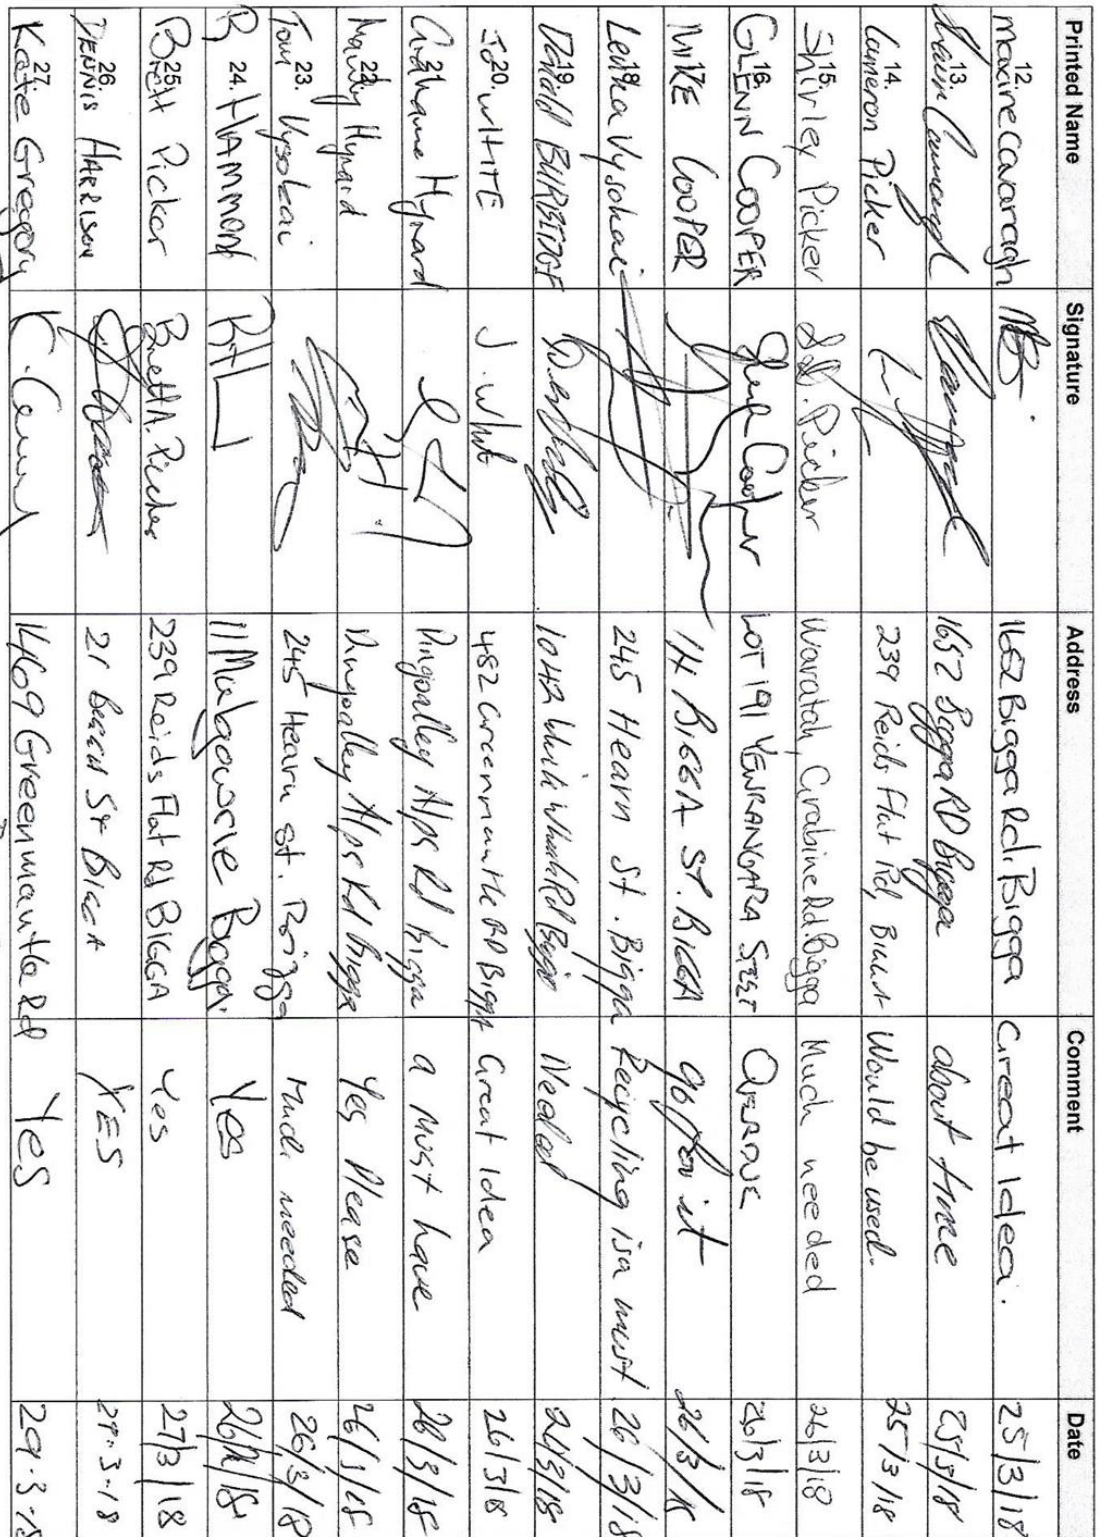 Printed Name Signature Address Comment Date
12. maxine Cavanagh 1652 Bigga Rd. Bigga Great Idea. 25/3/18
13. Cavanagh 1652 Bigga RD Bigga about time 25/3/18
14. Cameron Picker 239 Reids Flat Rd, Would be used. 25/3/18
15. Shirley Picker S. Picker Waratah, Grabine Rd Bigga Much needed 26/3/18
16. GLENN COOPER Glenn Cooper LOT 191 YEWRANGARA STEET OVERDUE 26/3/18
17. MIKE COOPER 14 BIGGA ST. BIGGA go for it 26/3/18
18. 245 Hearn St. Bigga Recycling is a must 26/3/18
19. BURBIDGE Rd Bigga Needed 26/3/18
20. Jo WHITE J. Whit 482 Greenmantle RD Bigga Great Idea 26/3/18
21. Hynard Alps Rd Bigga a must have 26/3/18
22. Hynard Alps Rd Bigga Yes Please 26/3/18
23. Tom 245 Hearn st. Bigga Much needed 26/3/18
24. B. HAMMOND BH 11 Malgowrie Bigga. Yes
25. Brett Picker Brett A. Picker 239 Reids Flat Rd BIGGA Yes 27/3/18
26. DENNIS HARRISON 21 St BIGGA YES 29-3-18
27. Katie Gregory 1469 Greenmantle Rd Yes 29.3.18